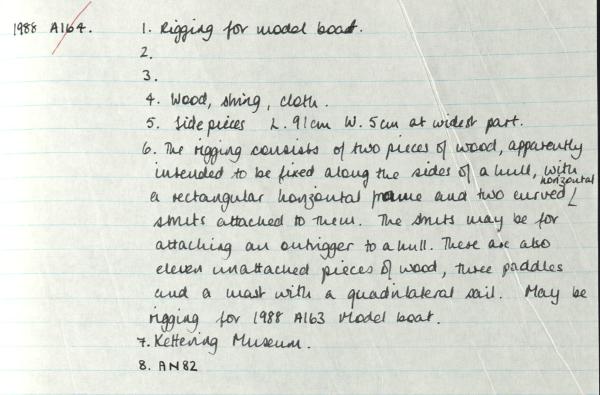 1988 A164. 1. Rigging for model boat.
2.
3.
4. Wood, string, cloth.
5. Side pieces L. 91cm W. 5cm at widest part.
6. The rigging consists of two pieces of wood, apparently
intended to be fixed along the sides of a hull, with
a rectangular horizontal frame and two curved horizontal
struts attached to them. The struts may be for
attaching an outrigger to a hull. There are also
eleven unattached pieces of wood, three paddles
and a mast with a quadrilateral sail. May be
rigging for 1988 A163 Model boat.
7. Kettering Museum.
8. AN82